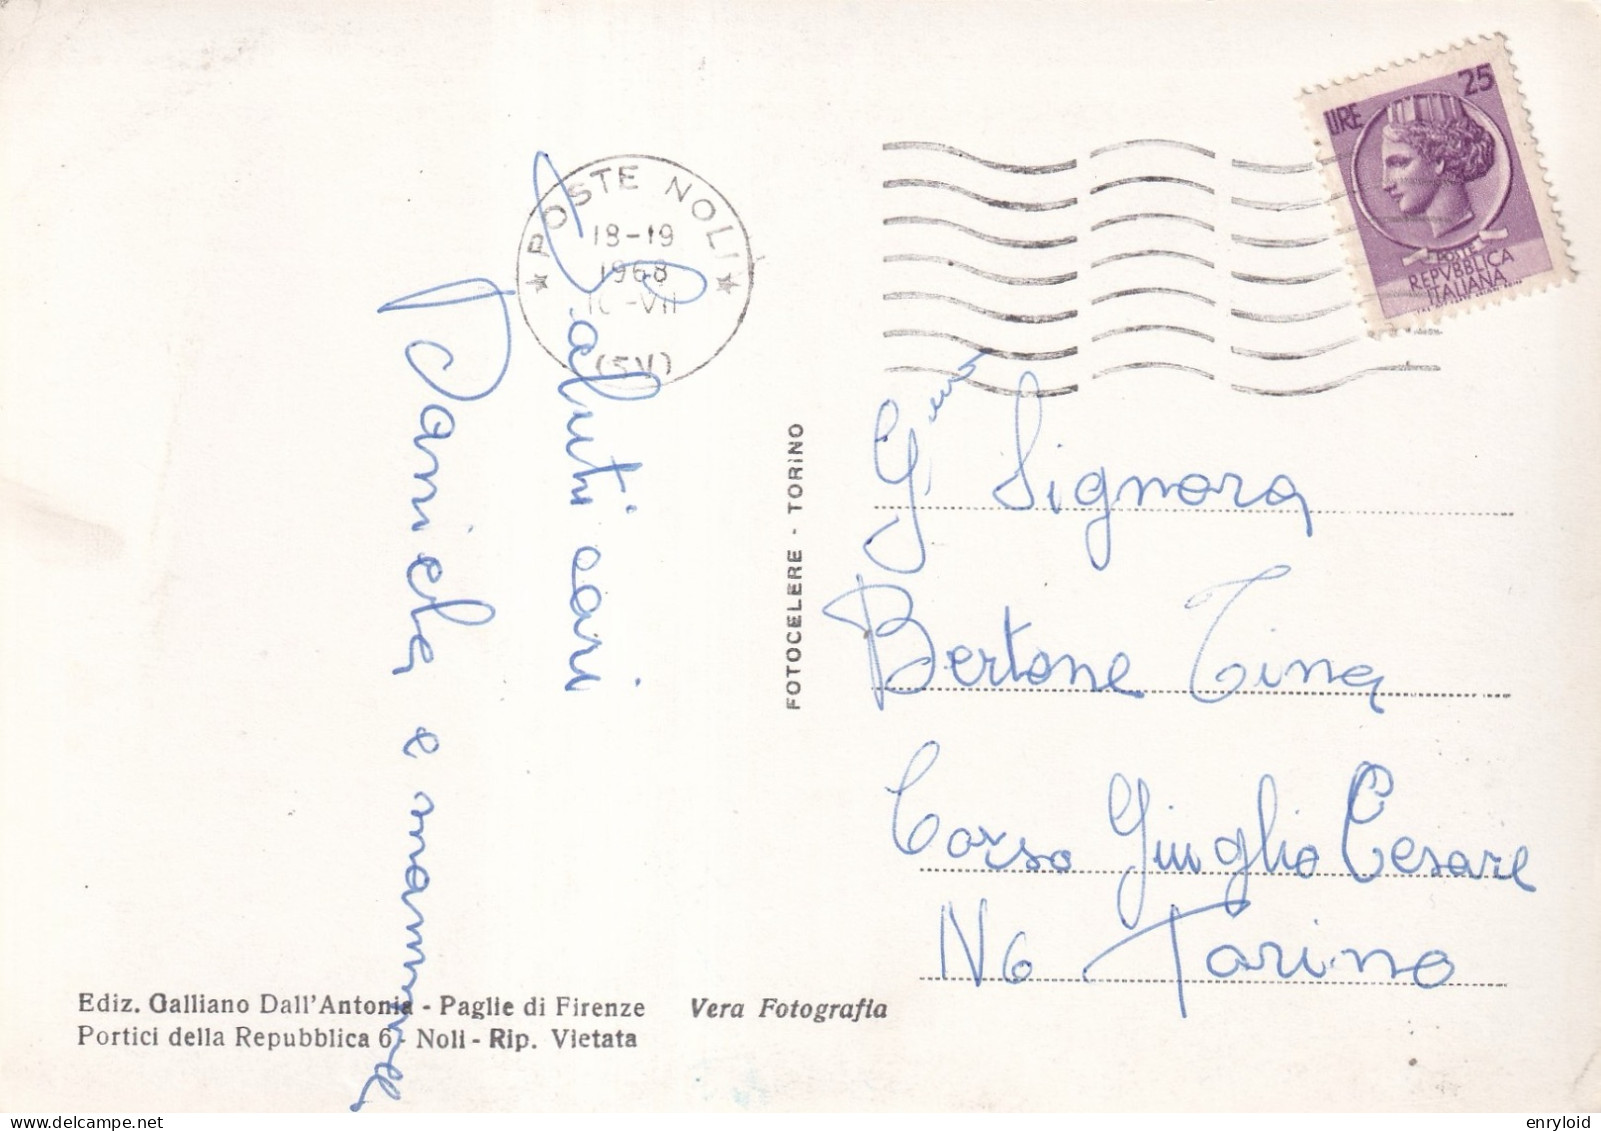 POSTE NOLI
18-19
1968
VII
(SV)
LIRE 25
POSTE
REPVBBLICA
ITALIANA
Saluti cari
Daniela e mamma
FOTOCELERE - TORINO
G.ma Signora
Bertone Tina
Corso Giuglio Cesare
N 6 Torino
Ediz. Galliano Dall'Antonia - Paglie di Firenze
Portici della Repubblica 6 - Noli - Rip. Vietata
Vera Fotografia
delcampe.net
enryloid